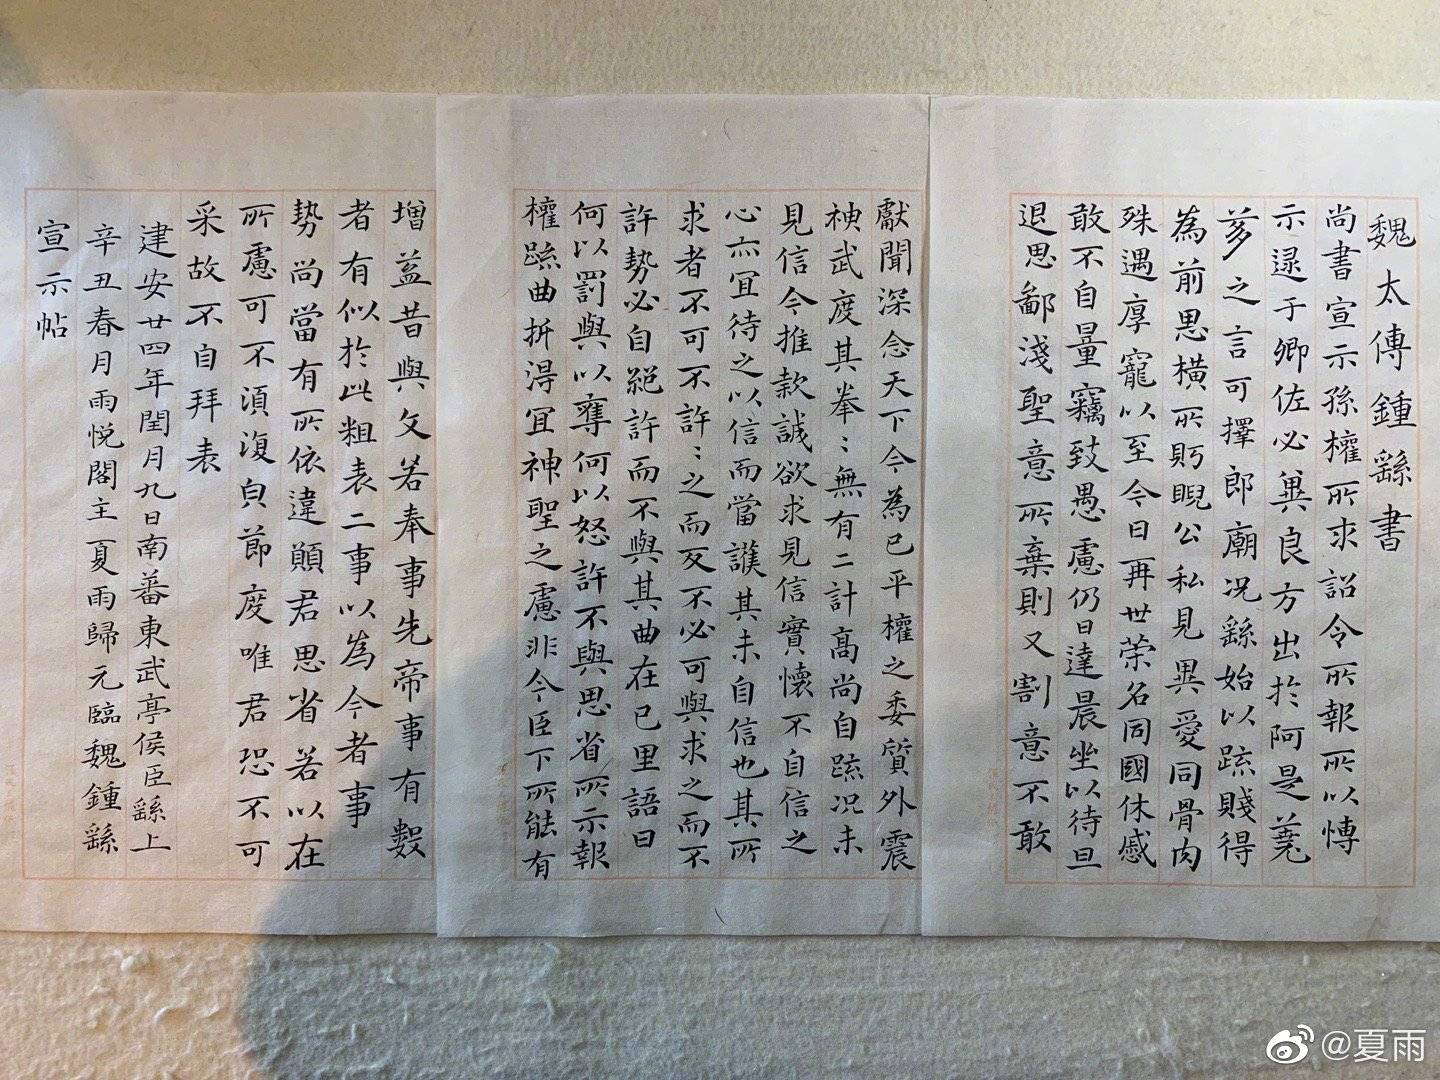 魏太傅鍾繇書
尚書宣示孫權所求詔令所報所以博
示逯于卿佐必兾良方出於阿是蒭
蕘之言可擇郎廟况繇始以疏賤得
為前恩橫所盱睨公私見異愛同骨肉
殊遇厚寵以至今日再世榮名同國休慼
敢不自量竊致愚慮仍日達晨坐以待旦
退思鄙淺聖意所棄則又割意不敢
獻聞深念天下今為已平權之委質外震
神武度其拳〻無有二計高尚自疏况未
見信今推款誠欲求見信實懷不自信之
心亦宜待之以信而當護其未自信也其所
求者不可不許〻之而反不必可與求之而不
許勢必自絕許而不與其曲在己里語曰
何以罰與以奪何以怒許不與思省所示報
權疏曲折得宜神聖之慮非今臣下所能有
增益昔與文若奉事先帝事有數
者有似於此粗表二事以為今者事
勢尚當有所依違願君思省若以在
所慮可不須復貞節度唯君恐不可
采故不自拜表
建安廿四年閏月九日南蕃東武亭侯臣繇上
辛丑春月雨悅閣主夏雨歸元臨魏鍾繇
宣示帖
@夏雨